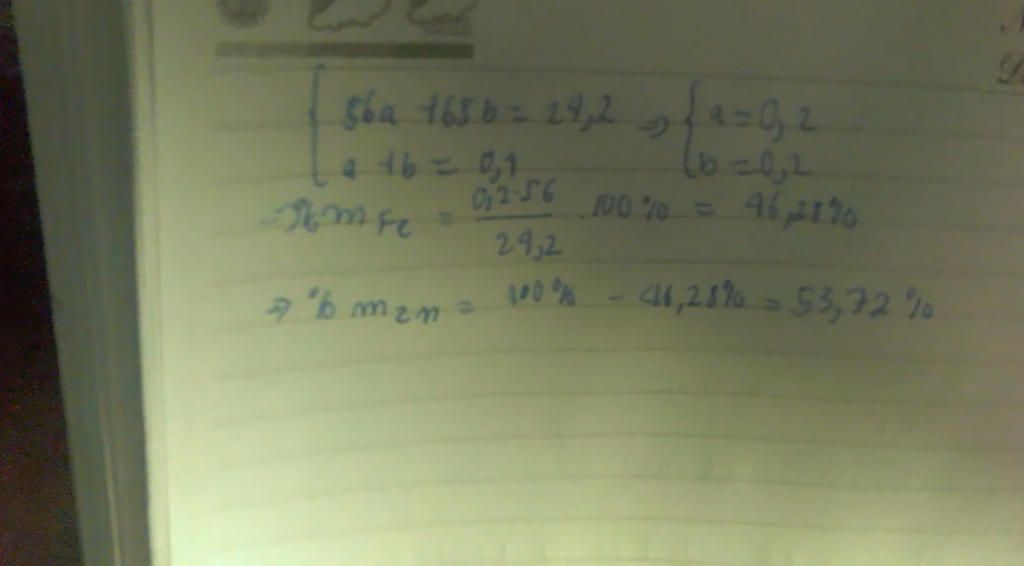 56a + 65b = 24,2 ⇒ { a = 0,2
a + b = 0,4 b = 0,2
⇒ % m Fe = 0,2.56 / 24,2 . 100% = 46,28%
⇒ % m Zn = 100% - 46,28% = 53,72%